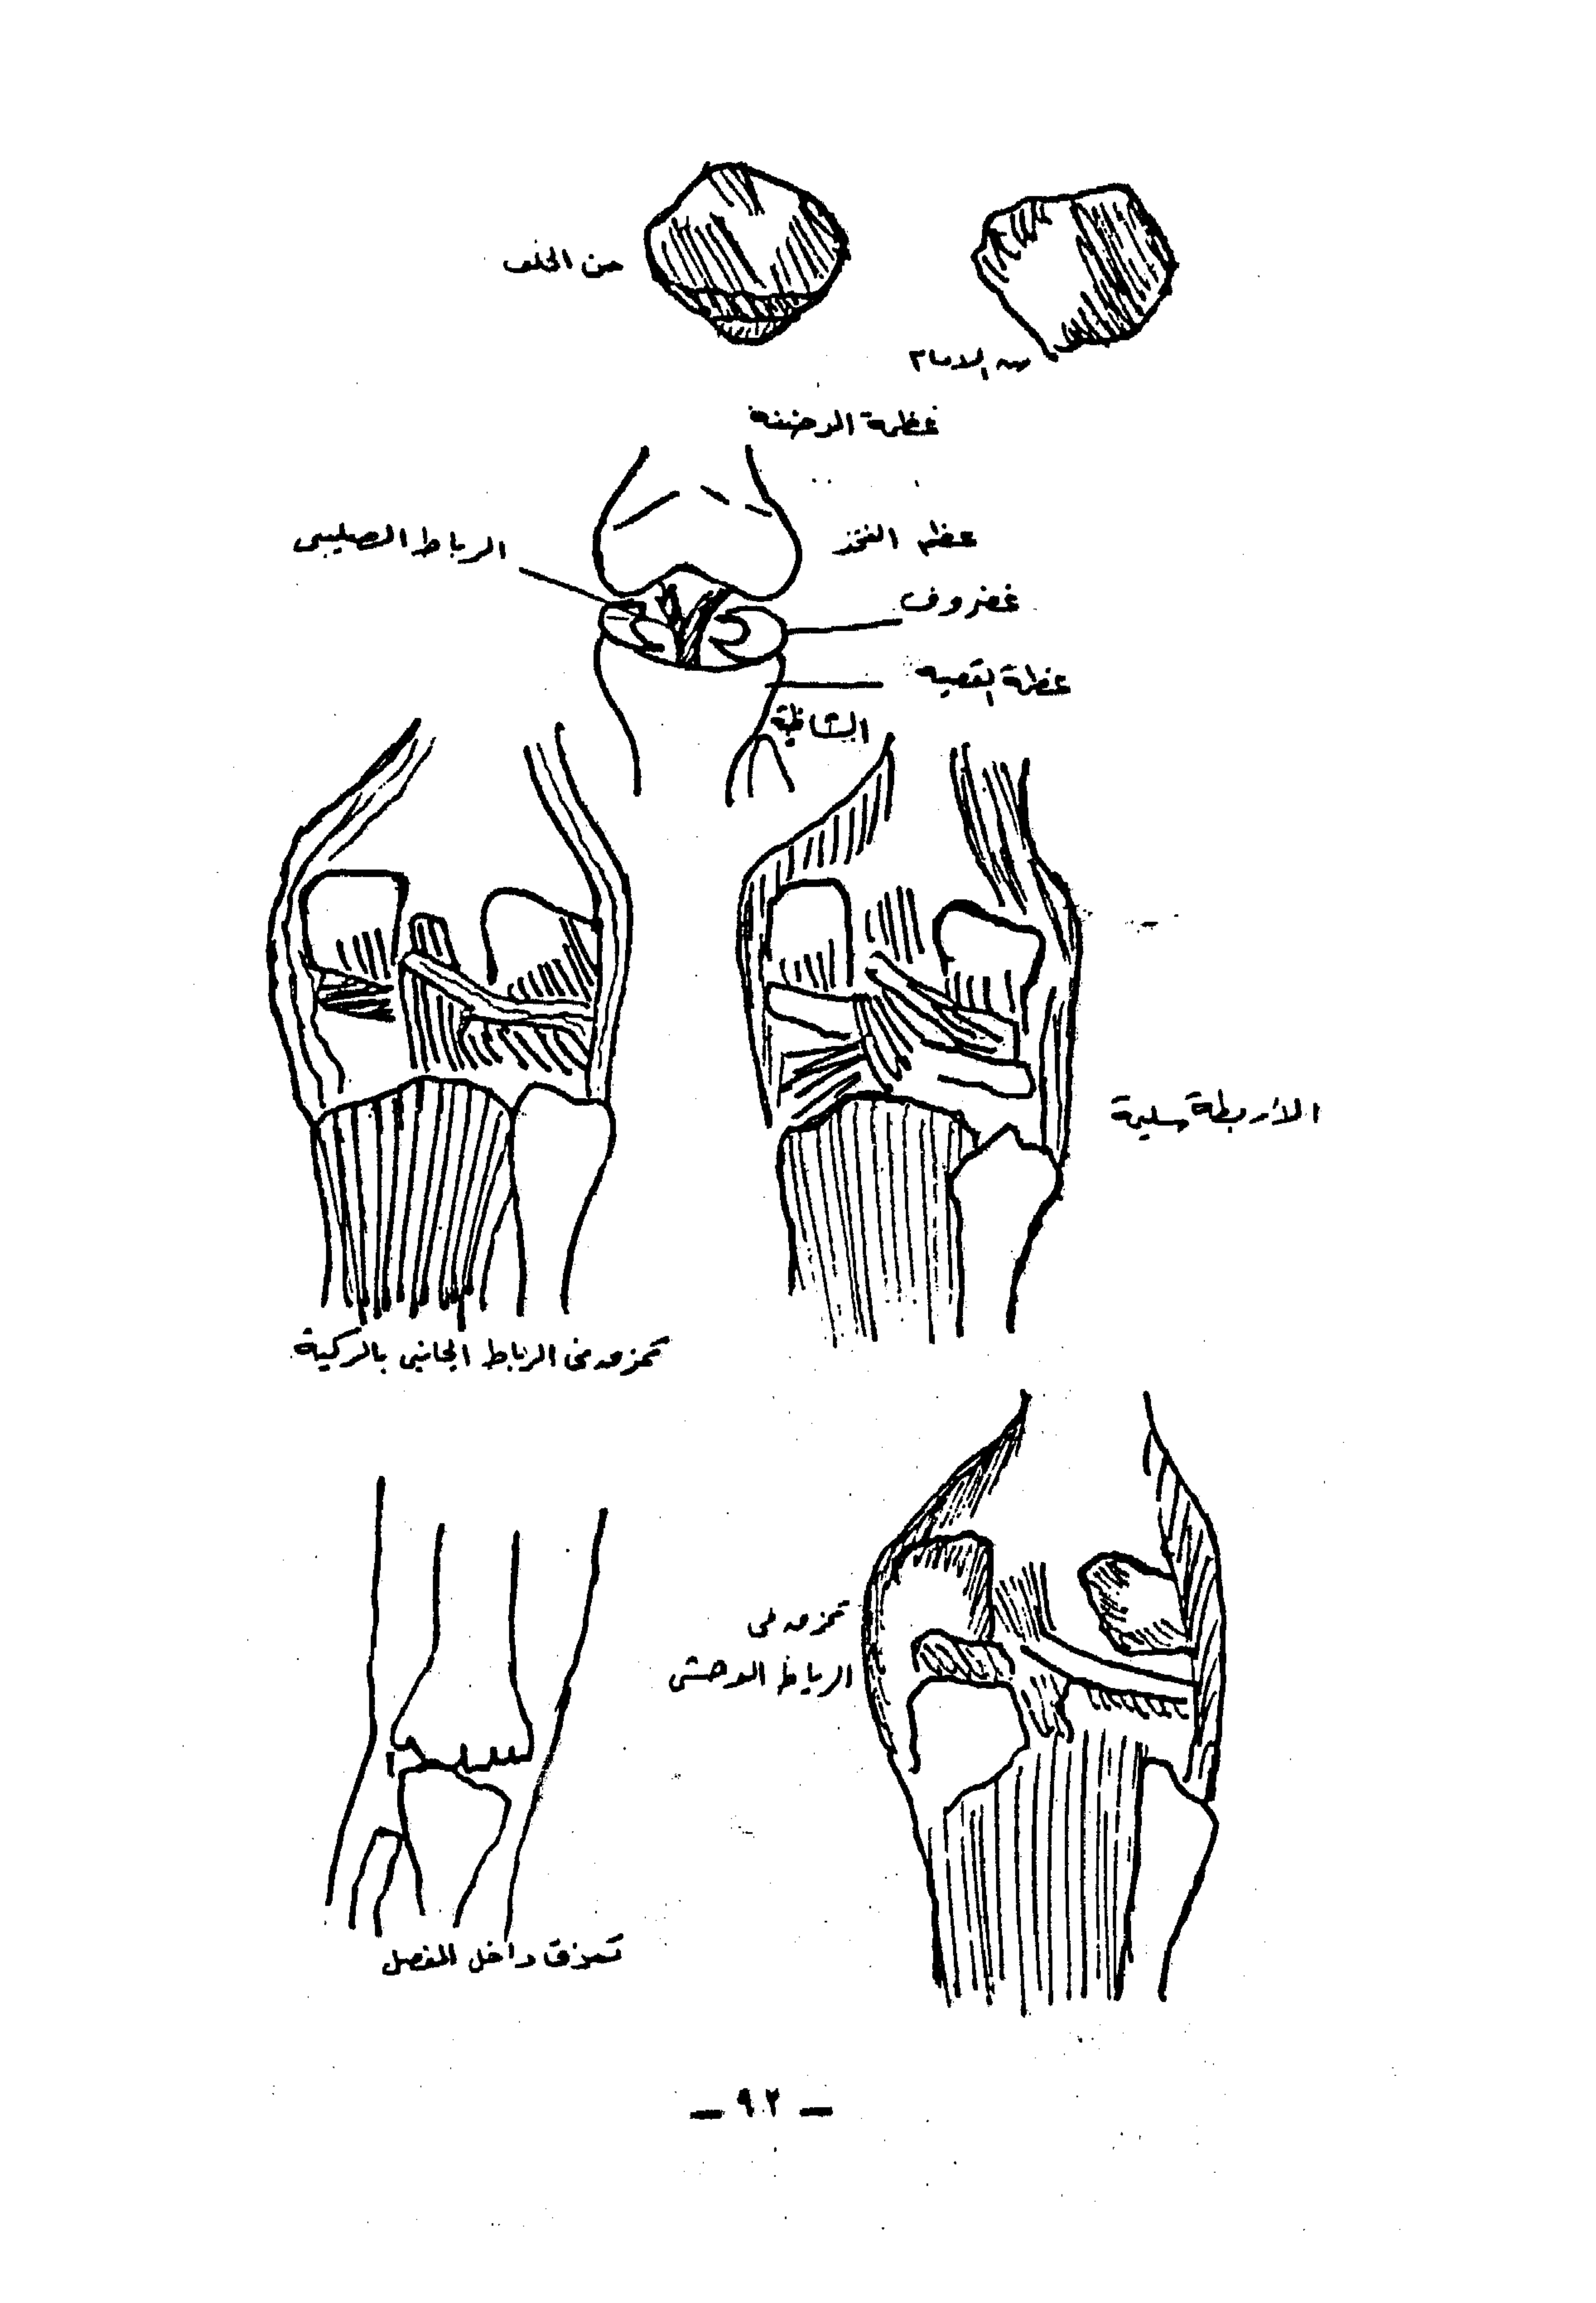 من الخلف
من الامام
عظمة الرضفة
الرباط الصليبى
عظم الفخذ
غضروف
عظمة القصبه
الشظية
الأربطة سليمة
تمزق فى الرباط الجانبى بالركبة
تمزق فى
الرباط الوحشى
تمزق داخل المفصل
– ٩٢ –